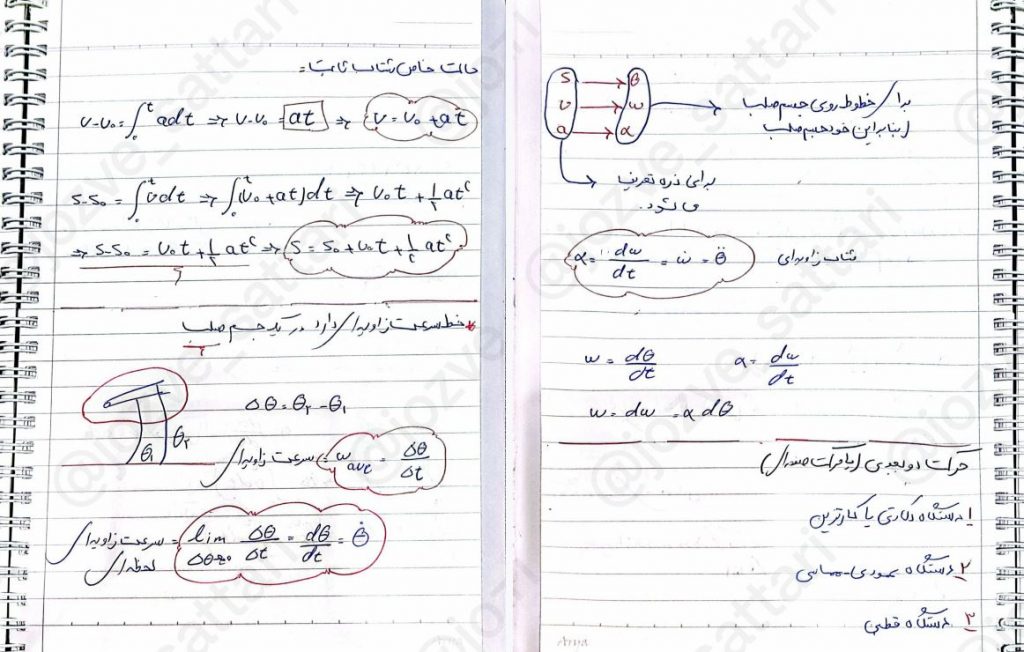 حالت خاص شتاب ثابت:
v-v₀ = ∫₀ᵗ adt ⇒ v-v₀ = at ⇒ v = v₀ + at
s-s₀ = ∫₀ᵗ vdt ⇒ ∫₀ᵗ (v₀ + at)dt ⇒ v₀t + ۱/۲ at²
⇒ s-s₀ = v₀t + ۱/۲ at² ⇒ s = s₀ + v₀t + ۱/۲ at²
* خط سرعت زاویه‌ای دارد در یک جسم صلب
Δθ = θ₂ - θ₁
θ₁ θ₂
سرعت زاویه‌ای = ω ave = Δθ/Δt
سرعت زاویه‌ای لحظه‌ای = lim Δθ/Δt = dθ/dt = θ̇
s → θ
v → ω
a → α
برای خطوط روی جسم صلب
بنابراین خود جسم صلب
برای ذره تعریف
می‌شود.
شتاب زاویه‌ای α = dω/dt = ω̇ = θ̈
ω = dθ/dt α = dω/dt
ω = dω = α dθ
حرکت دو بعدی
۱ دستگاه دکارتی یا کارتزین
۲ دستگاه عمودی-مماسی
۳ دستگاه قطبی
@jozve_sattari